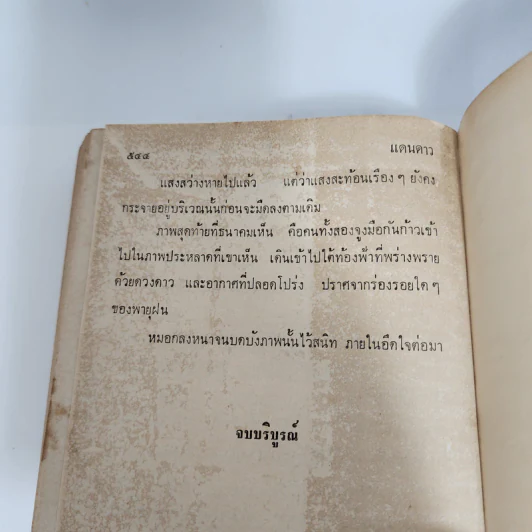 ๕๔๔ แดนดาว
แสงสว่างหายไปแล้ว แต่ว่าแสงสะท้อนเรือง ๆ ยังคง
กระจายอยู่บริเวณนั้นก่อนจะมืดลงตามเดิม
ภาพสุดท้ายที่ธนาคมเห็น คือคนทั้งสองจูงมือกันก้าวเข้า
ไปในภาพประหลาดที่เขาเห็น เดินเข้าไปใต้ท้องฟ้าที่พร่างพราย
ด้วยดวงดาว และอากาศที่ปลอดโปร่ง ปราศจากร่องรอยใด ๆ
ของพายุฝน
หมอกลงหนาจนบดบังภาพนั้นไว้สนิท ภายในอึดใจต่อมา
จบบริบูรณ์